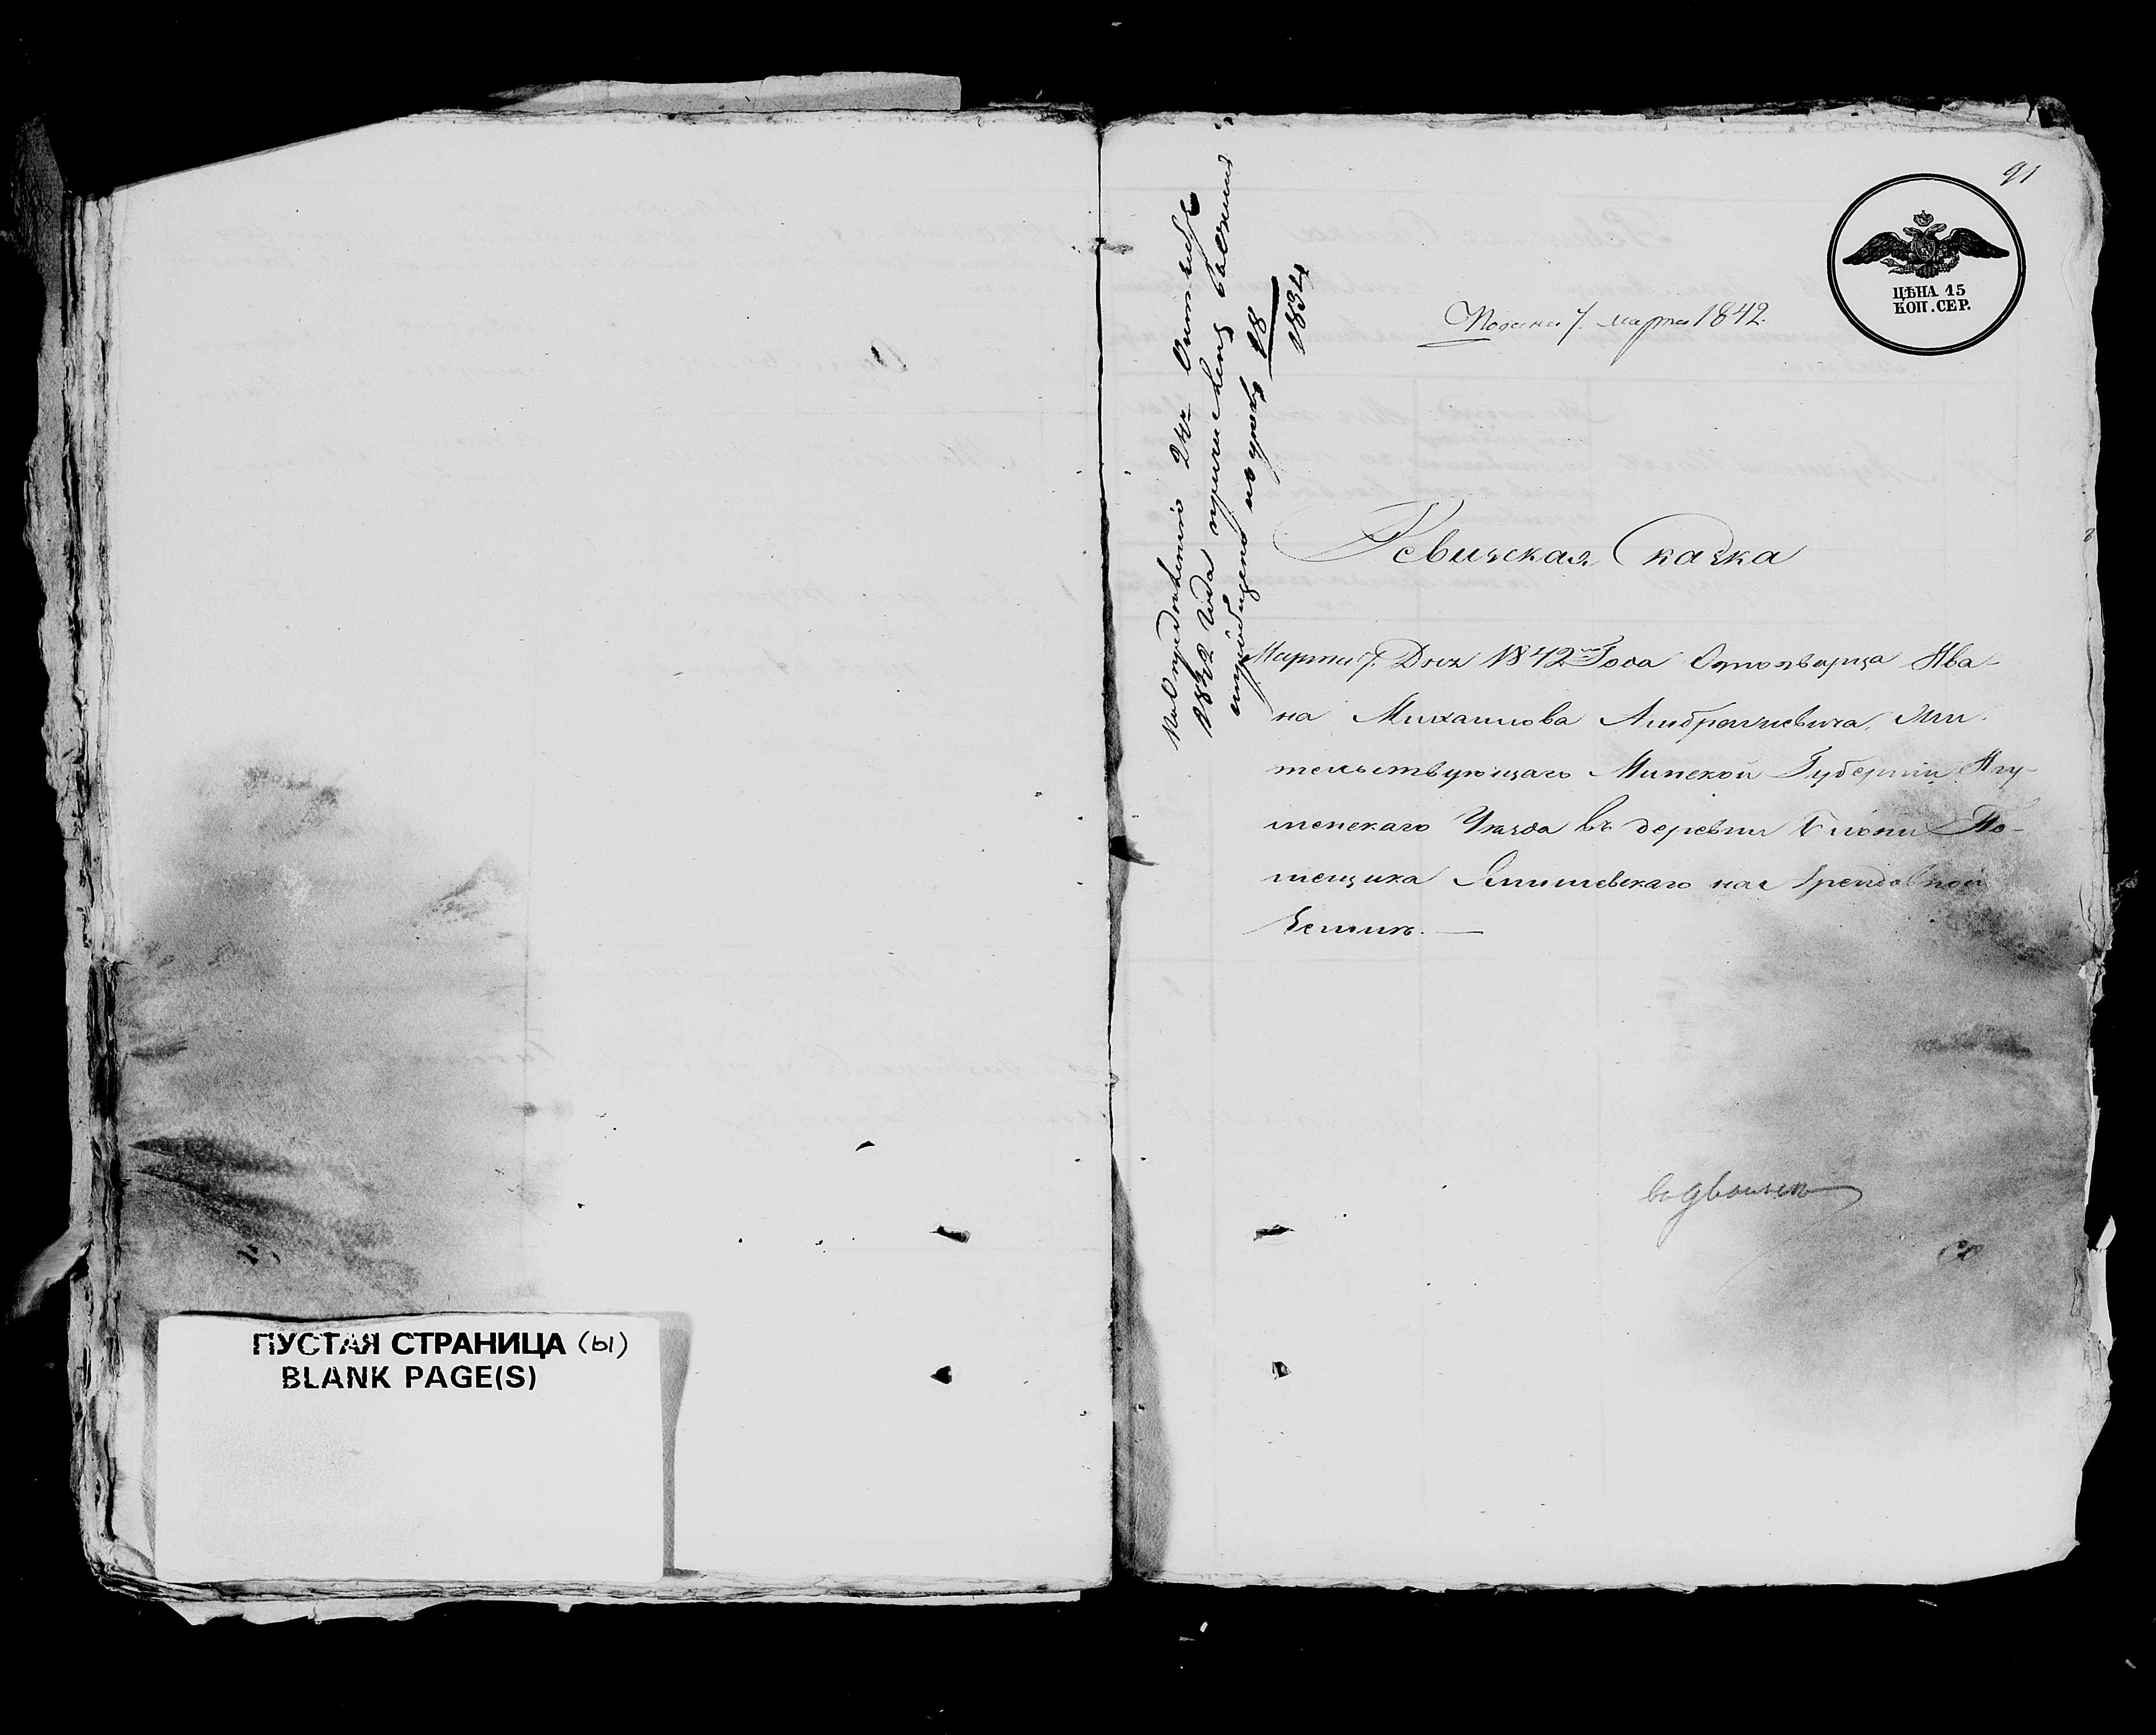 ПУСТАЯ СТРАНИЦА (ы)
BLANK PAGE(S)
91
ЦѢНА 15
КОП. СЕР.
Подана 7. марта 1842.
По определению 24го Октября
1842 Года причислен
сообщено по указу 18
1834
Ревизская Сказка
Марта 7. Дня 1842го Года Однодворца Ива-
на Михаилова Амбрашкевича, Жи-
тельствующаго Минской Губернии Игу-
менскаго Уезда въ деревни Блони По-
мещика на Арендовной
Земли.